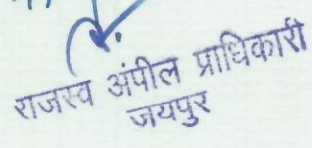 राजस्व अंपील प्राधिकारी
जयपुर